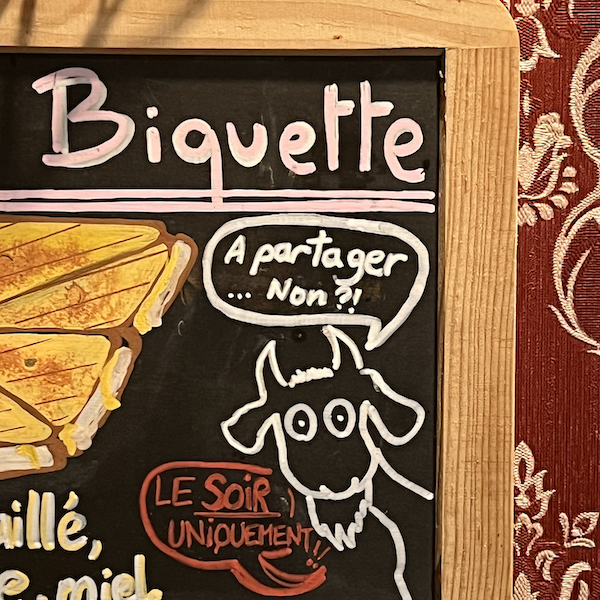 Biquette
A partager
... Non ?!
LE SOIR
UNIQUEMENT!!
aillé,
miel